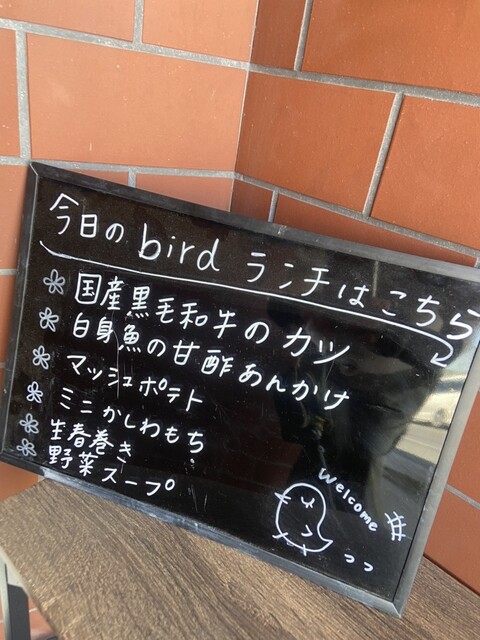 今日の bird ランチはこちら
国産黒毛和牛のカツ
白身魚の甘酢あんかけ
マッシュポテト
ミニかしわもち
生春巻き
野菜スープ
Welcome